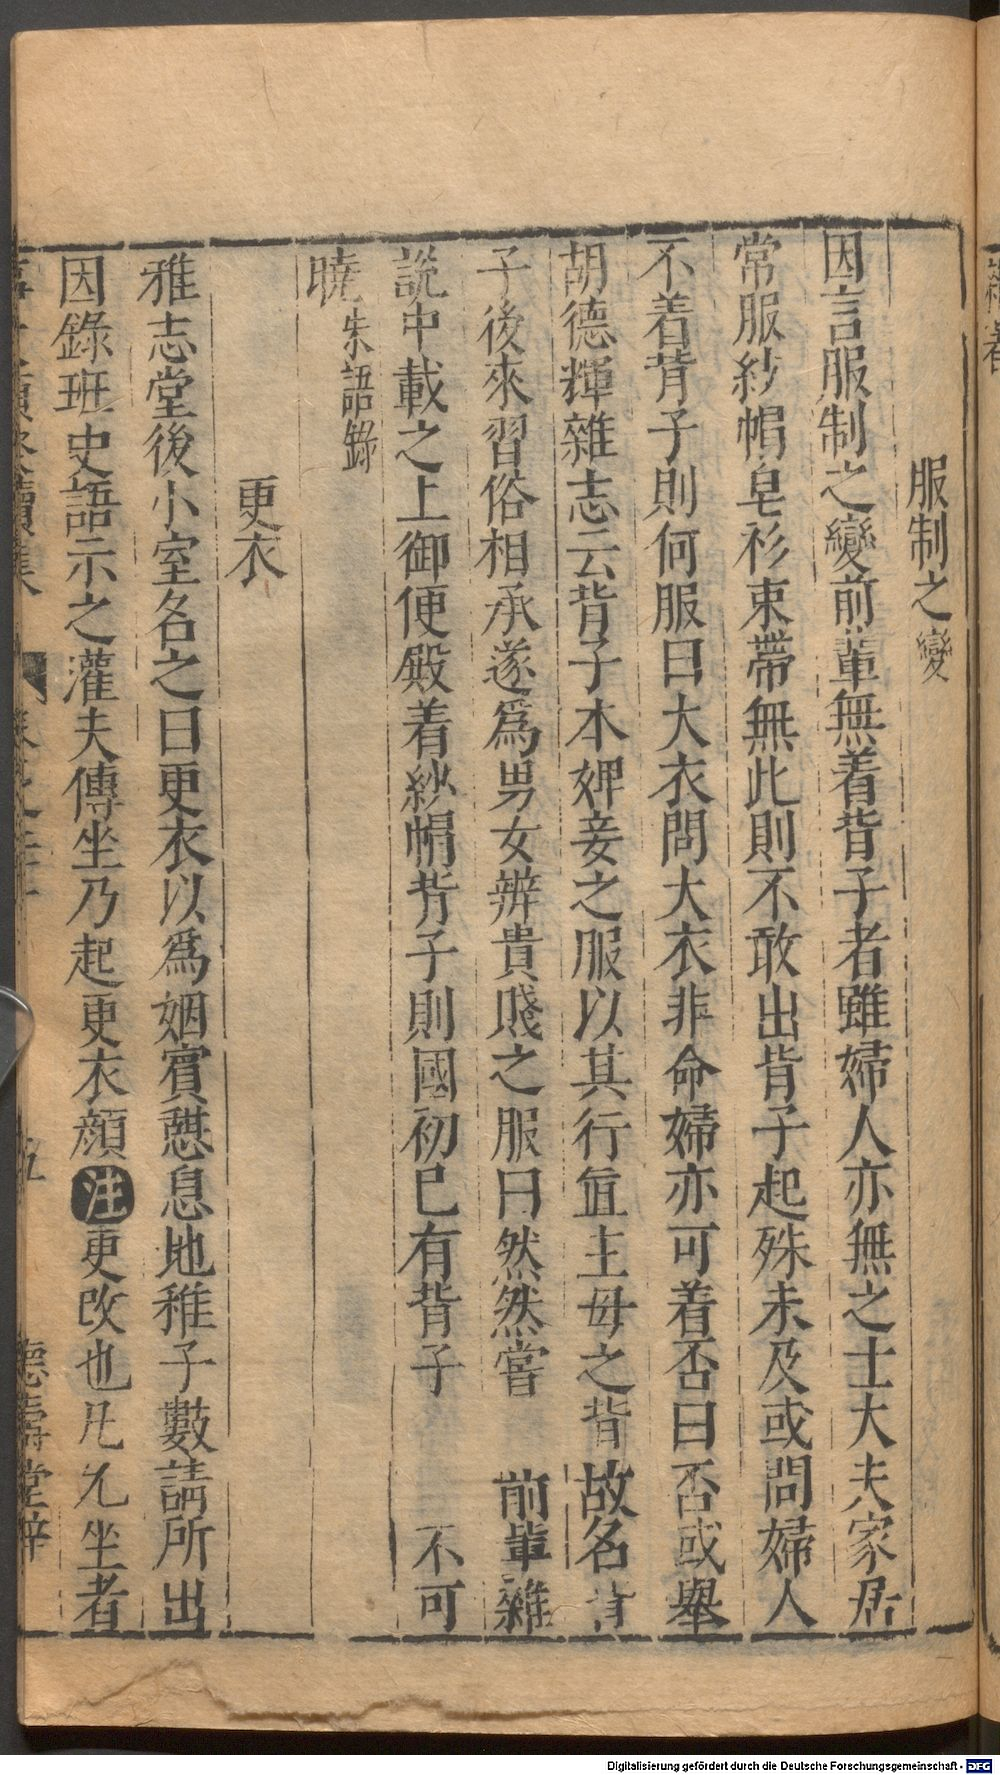 服制之變
因言服制之變前輩無着背子者雖婦人亦無之士大夫家居
常服紗帽皂衫束帶無此則不敢出背子起殊未及或問婦人
不着背子則何服曰大衣問大衣非命婦亦可着否曰否或舉
胡德輝雜志云背子本婢妾之服以其行直主母之背故名背
子後來習俗相承遂爲男女辨貴賤之服曰然然嘗 前輩雜
說中載之上御便殿着紗帽背子則國初已有背子 不可
曉朱語錄
更衣
雅志堂後小室名之曰更衣以爲姻賓憇息地稚子數請所出
因錄班史語示之灌夫傳坐乃起更衣顔注更改也凡久坐者
五 德壽堂梓
Digitalisierung gefördert durch die Deutsche Forschungsgemeinschaft - DFG